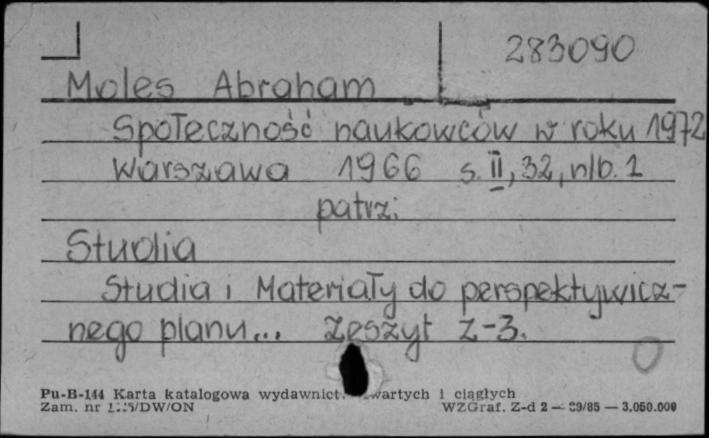 283090
Moles Abraham
Społeczność naukowców w roku 1972
Warszawa 1966 s. II, 32, nlb. 1
patrz:
Studia
Studia i Materiały do perspektywicz-
nego planu... Zeszyt Z-3.
Pu-B-144 Karta katalogowa wydawnict. zwartych i ciągłych
Zam. nr /DW/ON WZGraf. Z-d 2 — 89/85 — 3.050.000